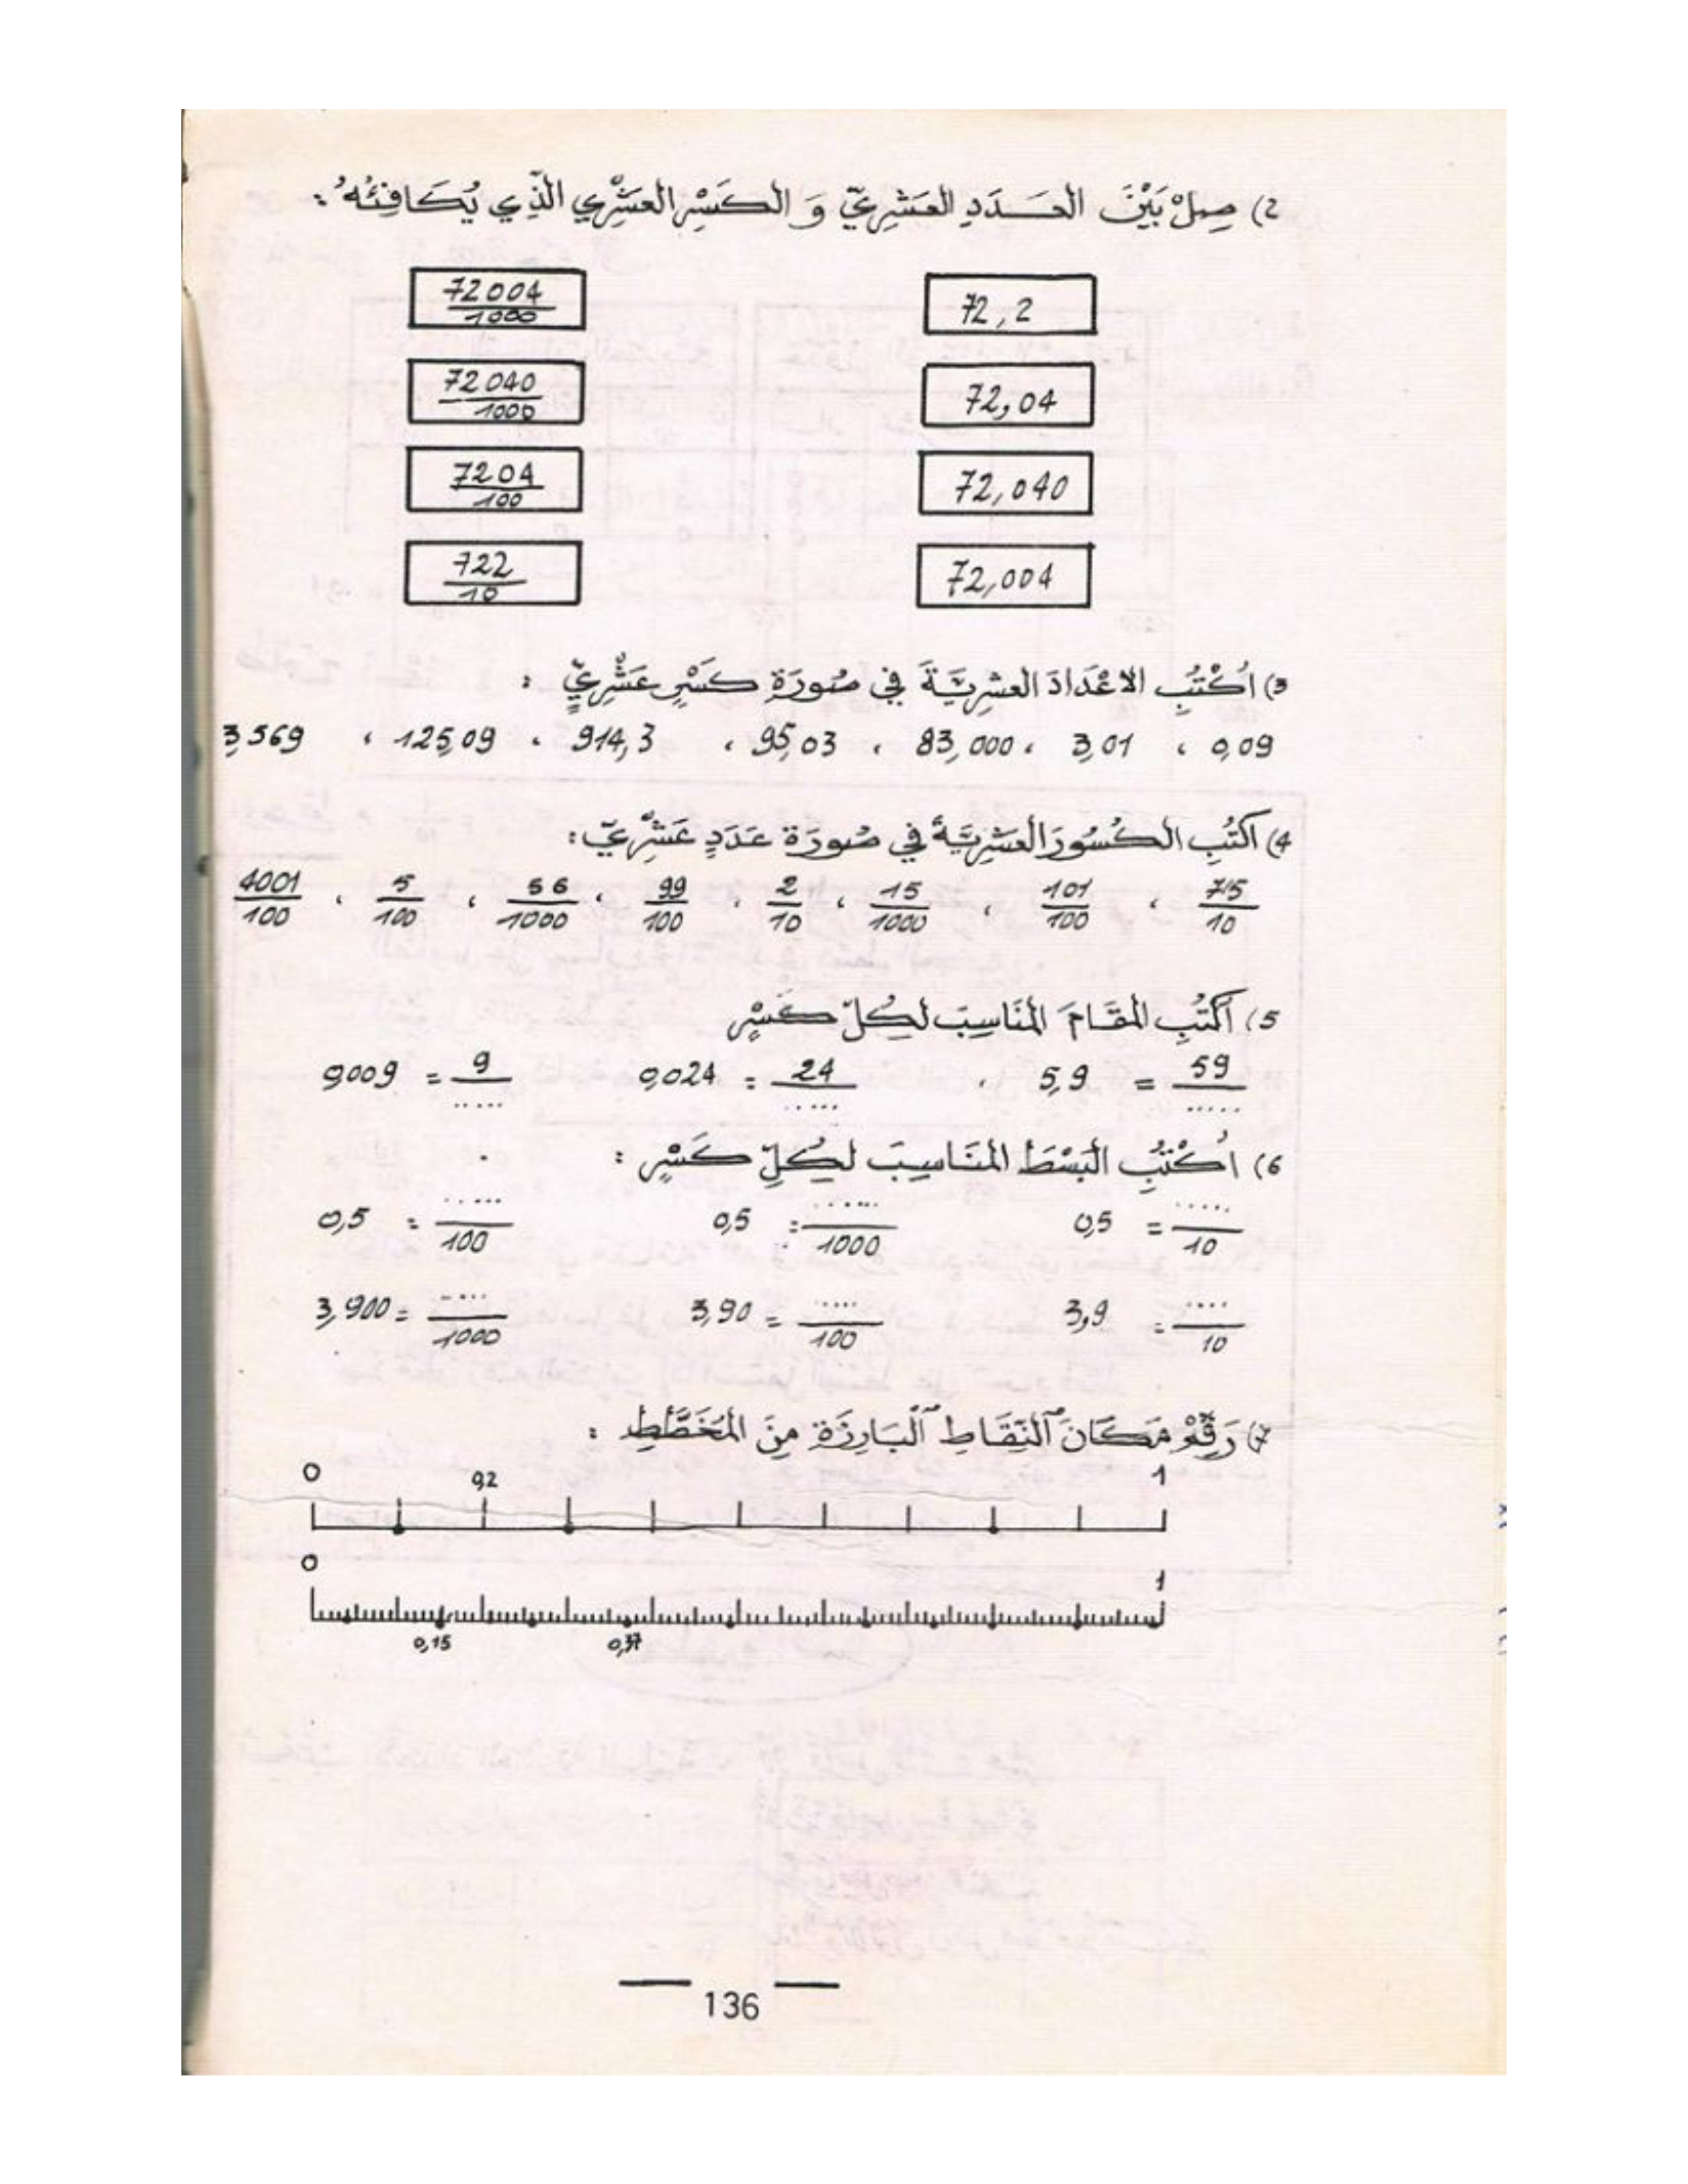 2) صِلْ بَيْنَ العَدَدِ العَشْرِيِّ وَ الكَسْرِ العَشْرِي الَّذِي يُكَافِئُهُ :
72,2 72004/1000
72,04 72040/1000
72,040 7204/100
72,004 722/10
3) اُكْتُبِ الاعْدَادَ العشرِيَّةَ فِي صُورَةِ كَسْرٍ عَشْرِيٍّ :
0,09 ، 3,01 ، 83,000 ، 95,03 ، 914,3 ، 125,09 ، 3,569
4) اكْتُبِ الكُسُورَ العَشْرِيَّةَ فِي صُورَة عَدَدٍ عَشْرِيّ :
715/10 ، 101/100 ، 15/1000 ، 2/10 ، 99/100 ، 56/1000 ، 5/100 ، 4001/100
5) اكْتُبِ المقَامَ المنَاسِبَ لِكُلّ كَسْرٍ
5,9 = 59/..... ، 0,024 = 24/..... 0,009 = 9/.....
6) اُكْتُبِ البَسْطَ المنَاسِبَ لِكُلِّ كَسْرٍ :
0,5 = ...../10 0,5 = ....../1000 0,5 = ...../100
3,9 = ..../10 3,90 = ..../100 3,900 = ...../1000
7) رَقِّمْ مَكَانَ النِّقَاطِ الْبَارِزَة مِنَ المُخَطَّطِ :
0 0,2 1
0 1
0,15 0,37
136